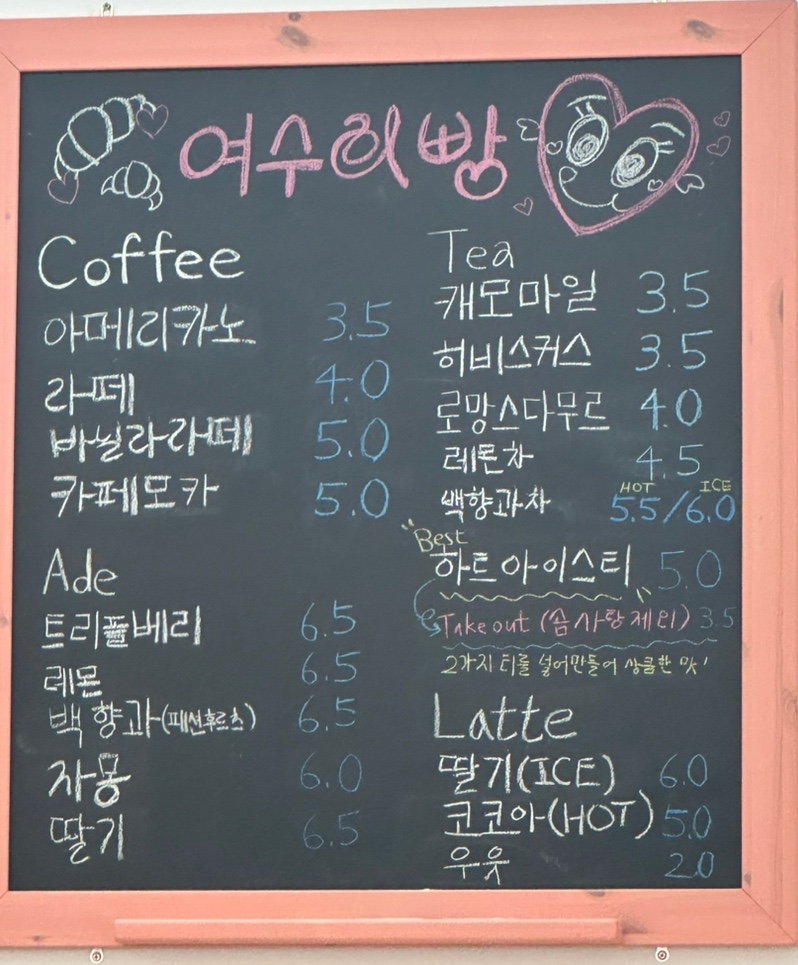 여수리빵
Coffee
아메리카노 3.5
라떼 4.0
바닐라라떼 5.0
카페모카 5.0
Ade
트리플베리 6.5
레몬 6.5
백향과(패션후르츠) 6.5
자몽 6.0
딸기 6.5
Tea
캐모마일 3.5
허비스커스 3.5
로망스다무르 4.0
레몬차 4.5
HOT ICE
백향과차 5.5/6.0
"Best
하트아이스티" 5.0
Take out (솜사탕제외) 3.5
2가지 티를 넣어만들어 상큼한 맛!
Latte
딸기(ICE) 6.0
코코아(HOT) 5.0
우유 2.0